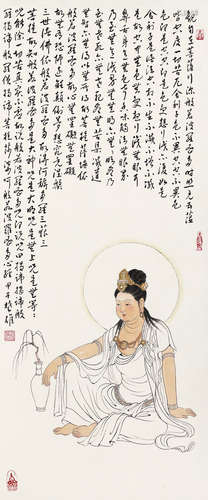 觀自在菩薩行深般若波羅蜜多時照見五蘊
皆空度一切苦厄舍利子色不異空空不異色
色即是空空即是色受想行識亦復如是
舍利子是諸法空相不生不滅不垢不淨不增不減
是故空中無色無受想行識無眼耳
鼻舌身意無色聲香味觸法無眼界
乃至無意識界無無明亦無無明盡
乃至無老死亦無老死盡無苦集滅道
無智亦無得以無所得故菩提薩埵
依般若波羅蜜多故心無罣礙無罣礙
故無有恐怖遠離顛倒夢想究竟涅槃
三世諸佛依般若波羅蜜多故得阿耨多羅三藐三
菩提故知般若波羅蜜多是大神咒是大明咒是無上咒是無等等
咒能除一切苦真實不虛故說般若波羅蜜多咒即說咒曰揭諦揭諦般
羅揭諦般羅僧揭諦菩提薩婆訶般若波羅蜜多心經甲午